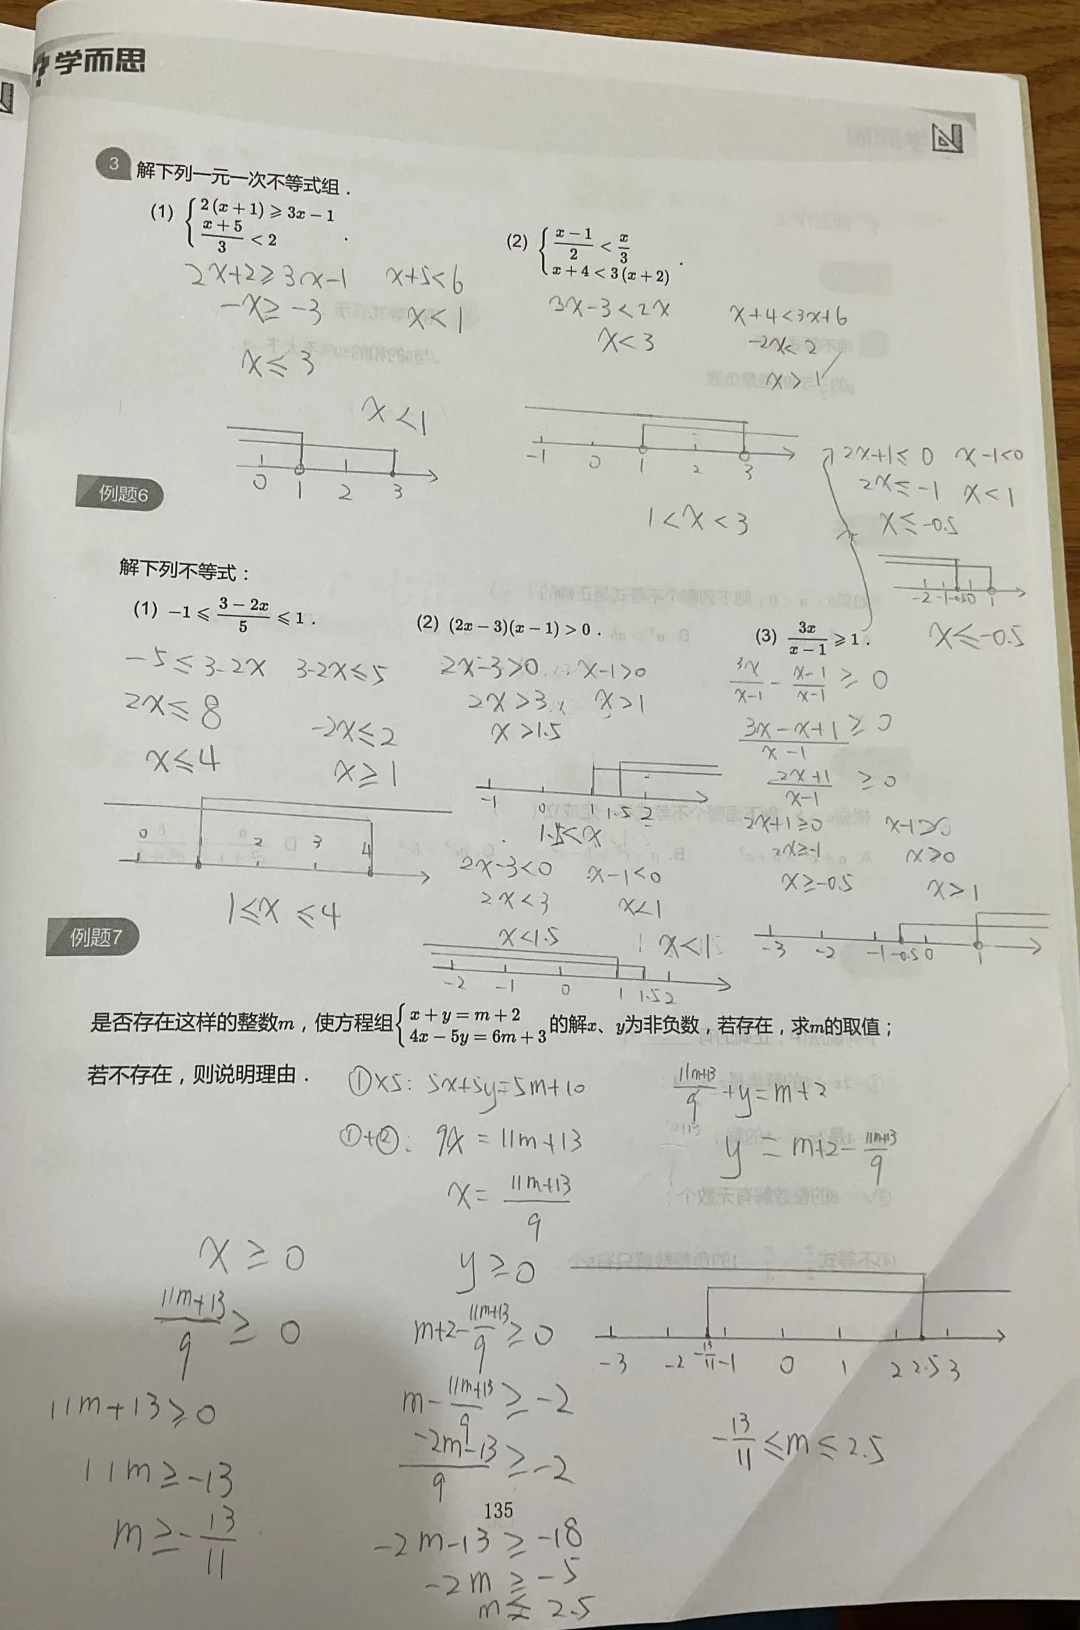 学而思
3 解下列一元一次不等式组.
(1) { 2(x+1)⩾3x-1
(x+5)/3<2 .
2x+2≥3x-1 x+5<6
-x≥-3 x<1
x≤3
x<1
0 1 2 3
(2) { (x-1)/2<x/3
x+4<3(x+2) .
3x-3<2x x+4<3x+6
x<3 -2x<2
x>1
-1 0 1 2 3
1<x<3
例题6
解下列不等式:
(1) -1⩽(3-2x)/5⩽1.
-5≤3-2x 3-2x≤5
2x≤8 -2x≤2
x≤4 x≥1
0 2 3 4
1≤x≤4
(2) (2x-3)(x-1)>0.
2x-3>0 x-1>0
2x>3 x>1
x>1.5
-1 0 1 1.5 2
1.5<x
2x-3<0 x-1<0
2x<3 x<1
x<1.5 x<1
-2 -1 0 1 1.5 2
(3) 3x/(x-1)⩾1.
3x/(x-1)-(x-1)/(x-1)≥0
(3x-x+1)/(x-1)≥0
(2x+1)/(x-1)≥0
2x+1≥0
2x≥-1 x>0
x≥-0.5 x>1
-3 -2 -1 -0.5 0 1
2x+1≤0 x-1<0
2x≤-1 x<1
x≤-0.5
-2 -1 -0.5 0 1
x≤-0.5
例题7
是否存在这样的整数m,使方程组{ x+y=m+2
4x-5y=6m+3 的解x、y为非负数,若存在,求m的取值;
若不存在,则说明理由.
①×5: 5x+5y=5m+10
①+②: 9x=11m+13
x=(11m+13)/9
(11m+13)/9+y=m+2
y=m+2-(11m+13)/9
x≥0
(11m+13)/9≥0
11m+13≥0
11m≥-13
m≥-13/11
y≥0
m+2-(11m+13)/9≥0
m-(11m+13)/9≥-2
(-2m-13)/9≥-2
135
-2m-13≥-18
-2m≥-5
m≤2.5
-3 -2 -13/11 -1 0 1 2 2.5 3
-13/11≤m≤2.5